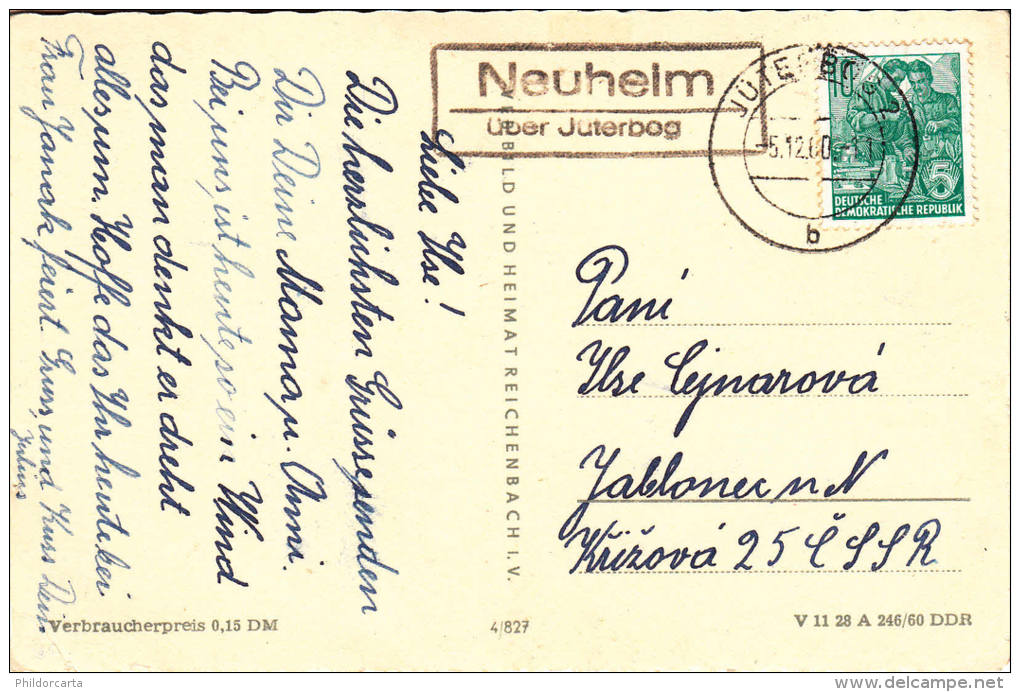 Neuheim
über Jüterbog
JÜTERBOG
-5.12.60
b
10
5
DEUTSCHE
DEMOKRATISCHE REPUBLIK
Liebe Ilse!
Die herzlichsten Grüsse senden
Dir Deine Mama u. Anni.
Bei uns ist heute so ein Wind
das man denkt er dreht
alles um. Hoffe das Ihr heute bei
Frau Janak feiert. Gruss und Kuss Dein
Julius
BILD UND HEIMAT REICHENBACH I. V.
Paní
Ilse Cejnarová
Jablonec n N
Křížová 25 ČSSR
Verbraucherpreis 0,15 DM
4/827
V 11 28 A 246/60 DDR
Phildorcarta
www.delcampe.net